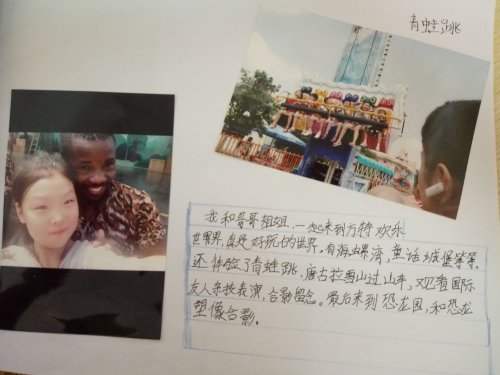 青蛙跳
我和哥哥姐姐,一起来到方特欢乐
世界,真是好玩的世界,有海螺湾,童话城堡等等.
还体验了青蛙跳,唐古拉雪山过山车,观看国际
友人亲技表演,合影留念。最后来到恐龙园,和恐龙
塑像合影.